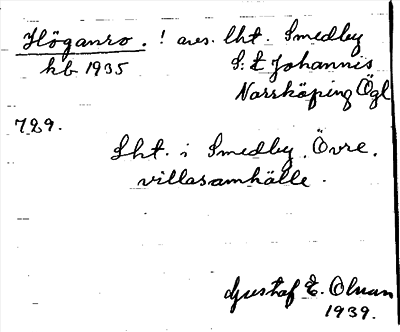 Höganro. ! avs. lht. Smedby
kb 1935 S:t Johannis
Norrköping Ögl
729.
Lht. i Smedby, Övre,
villasamhälle.
Gustaf E. Olman
1939.